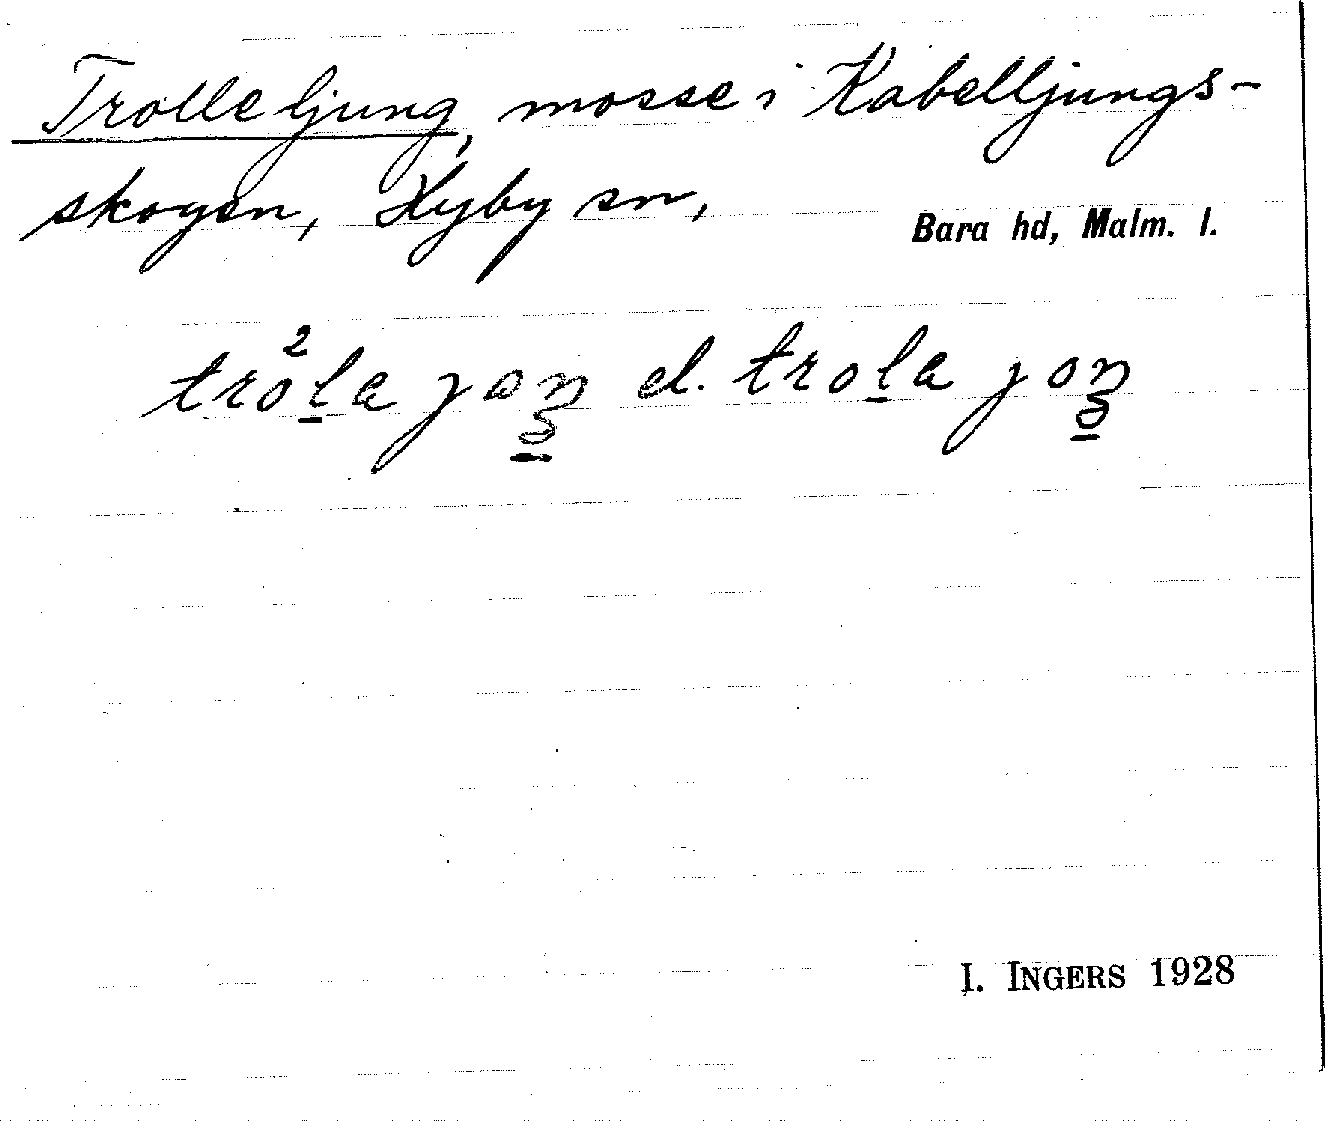 Trolleljung, mosse i Kabelljungs-
skogen, Hyby sn, Bara hd, Malm. l.
tro²l̲a joŋ̲ el. trol̲a joŋ̲
I. INGERS 1928